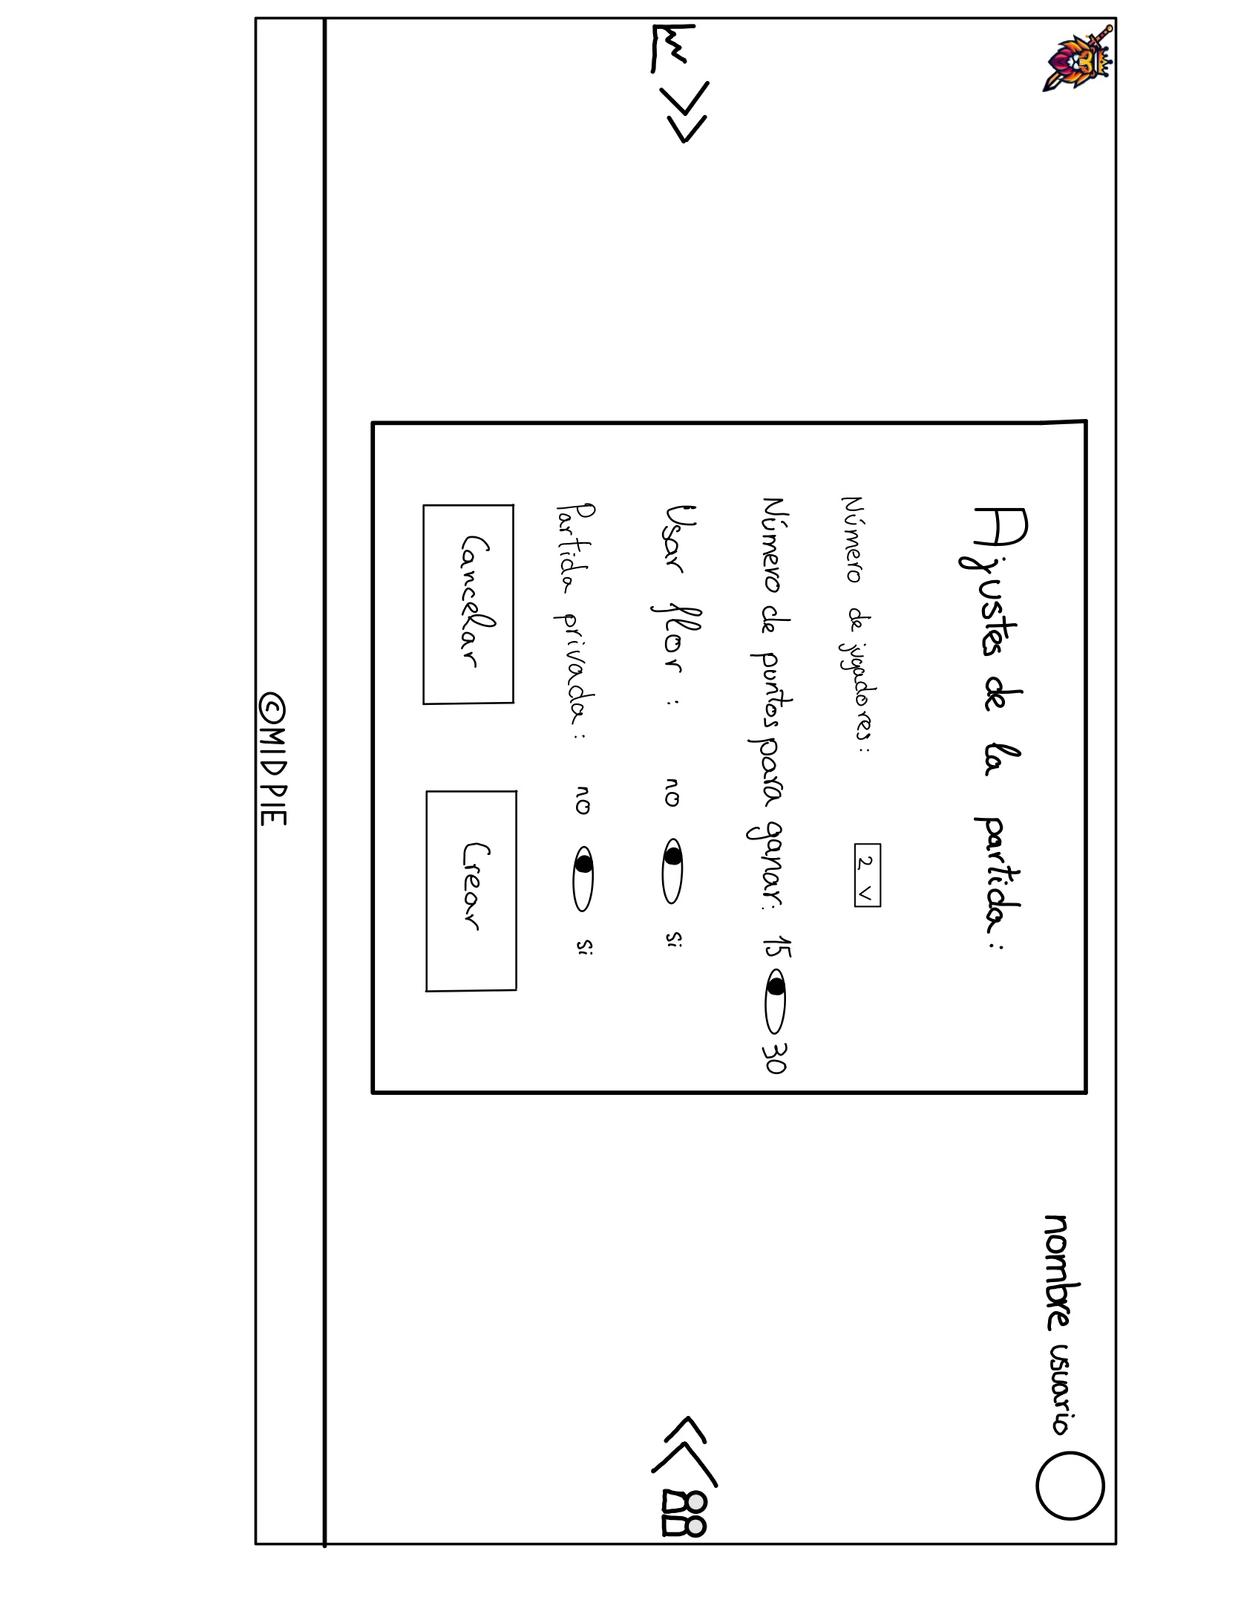 nombre usuario
Ajustes de la partida:
Número de jugadores: 2 v
Número de puntos para ganar: 15 30
Usar flor: no si
Partida privada: no si
Cancelar Crear
©MIDPIE